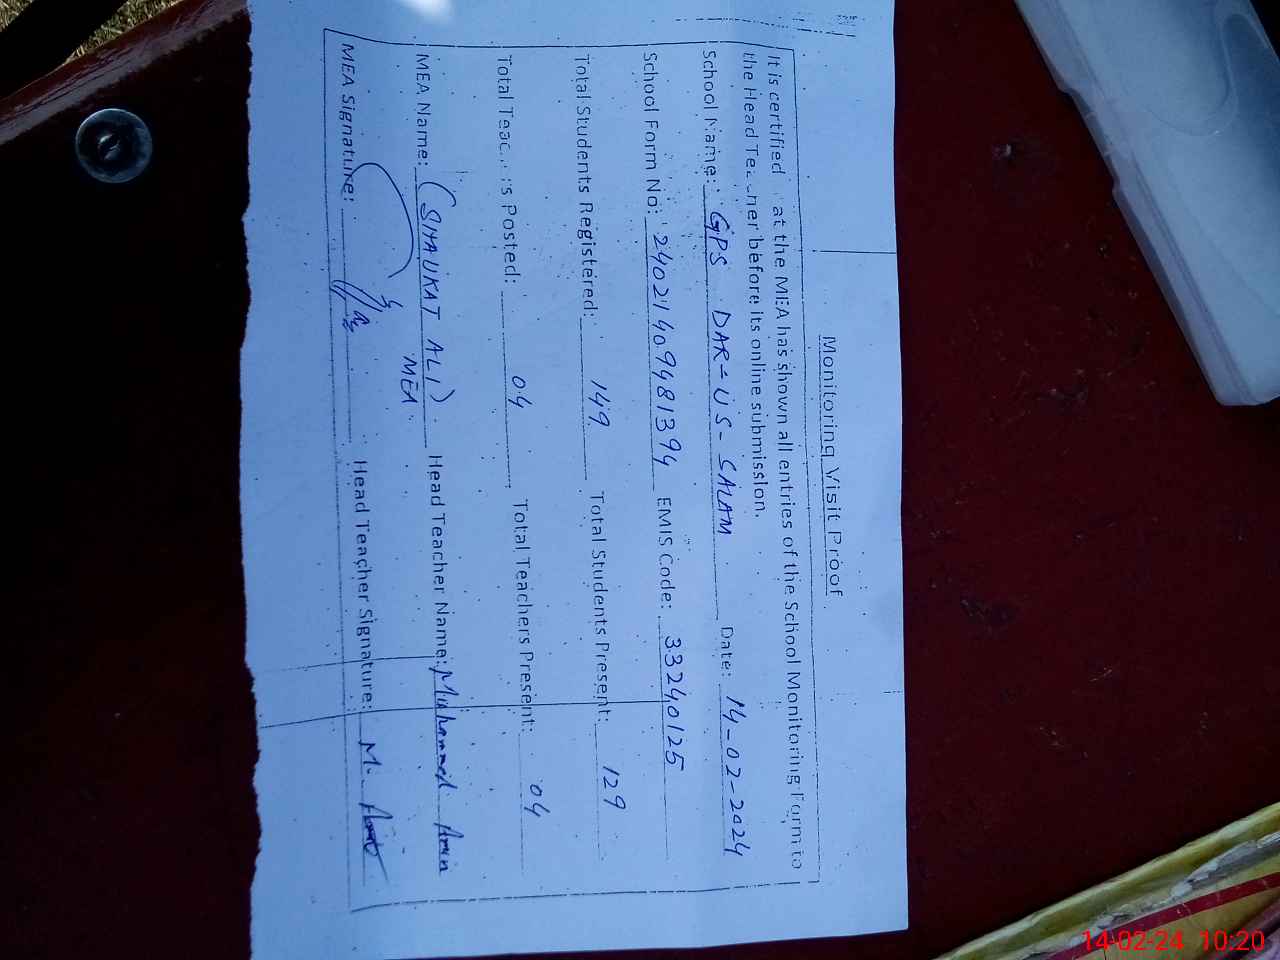 Monitoring Visit Proof
It is certified at the MEA has shown all entries of the School Monitoring Form to
the Head Teacher before its online submission.
School Name: GPS DAR-US-SALAM Date: 14-02-2024
School Form No: 24021409481394 EMIS Code: 33240125
Total Students Registered: 149 Total Students Present: 129
Total Teachers Posted: 04 Total Teachers Present: 04
MEA Name: (SHAUKAT ALI) Head Teacher Name: Muhammad Amin
MEA
MEA Signature: Head Teacher Signature: M.
14-02-24 10:20